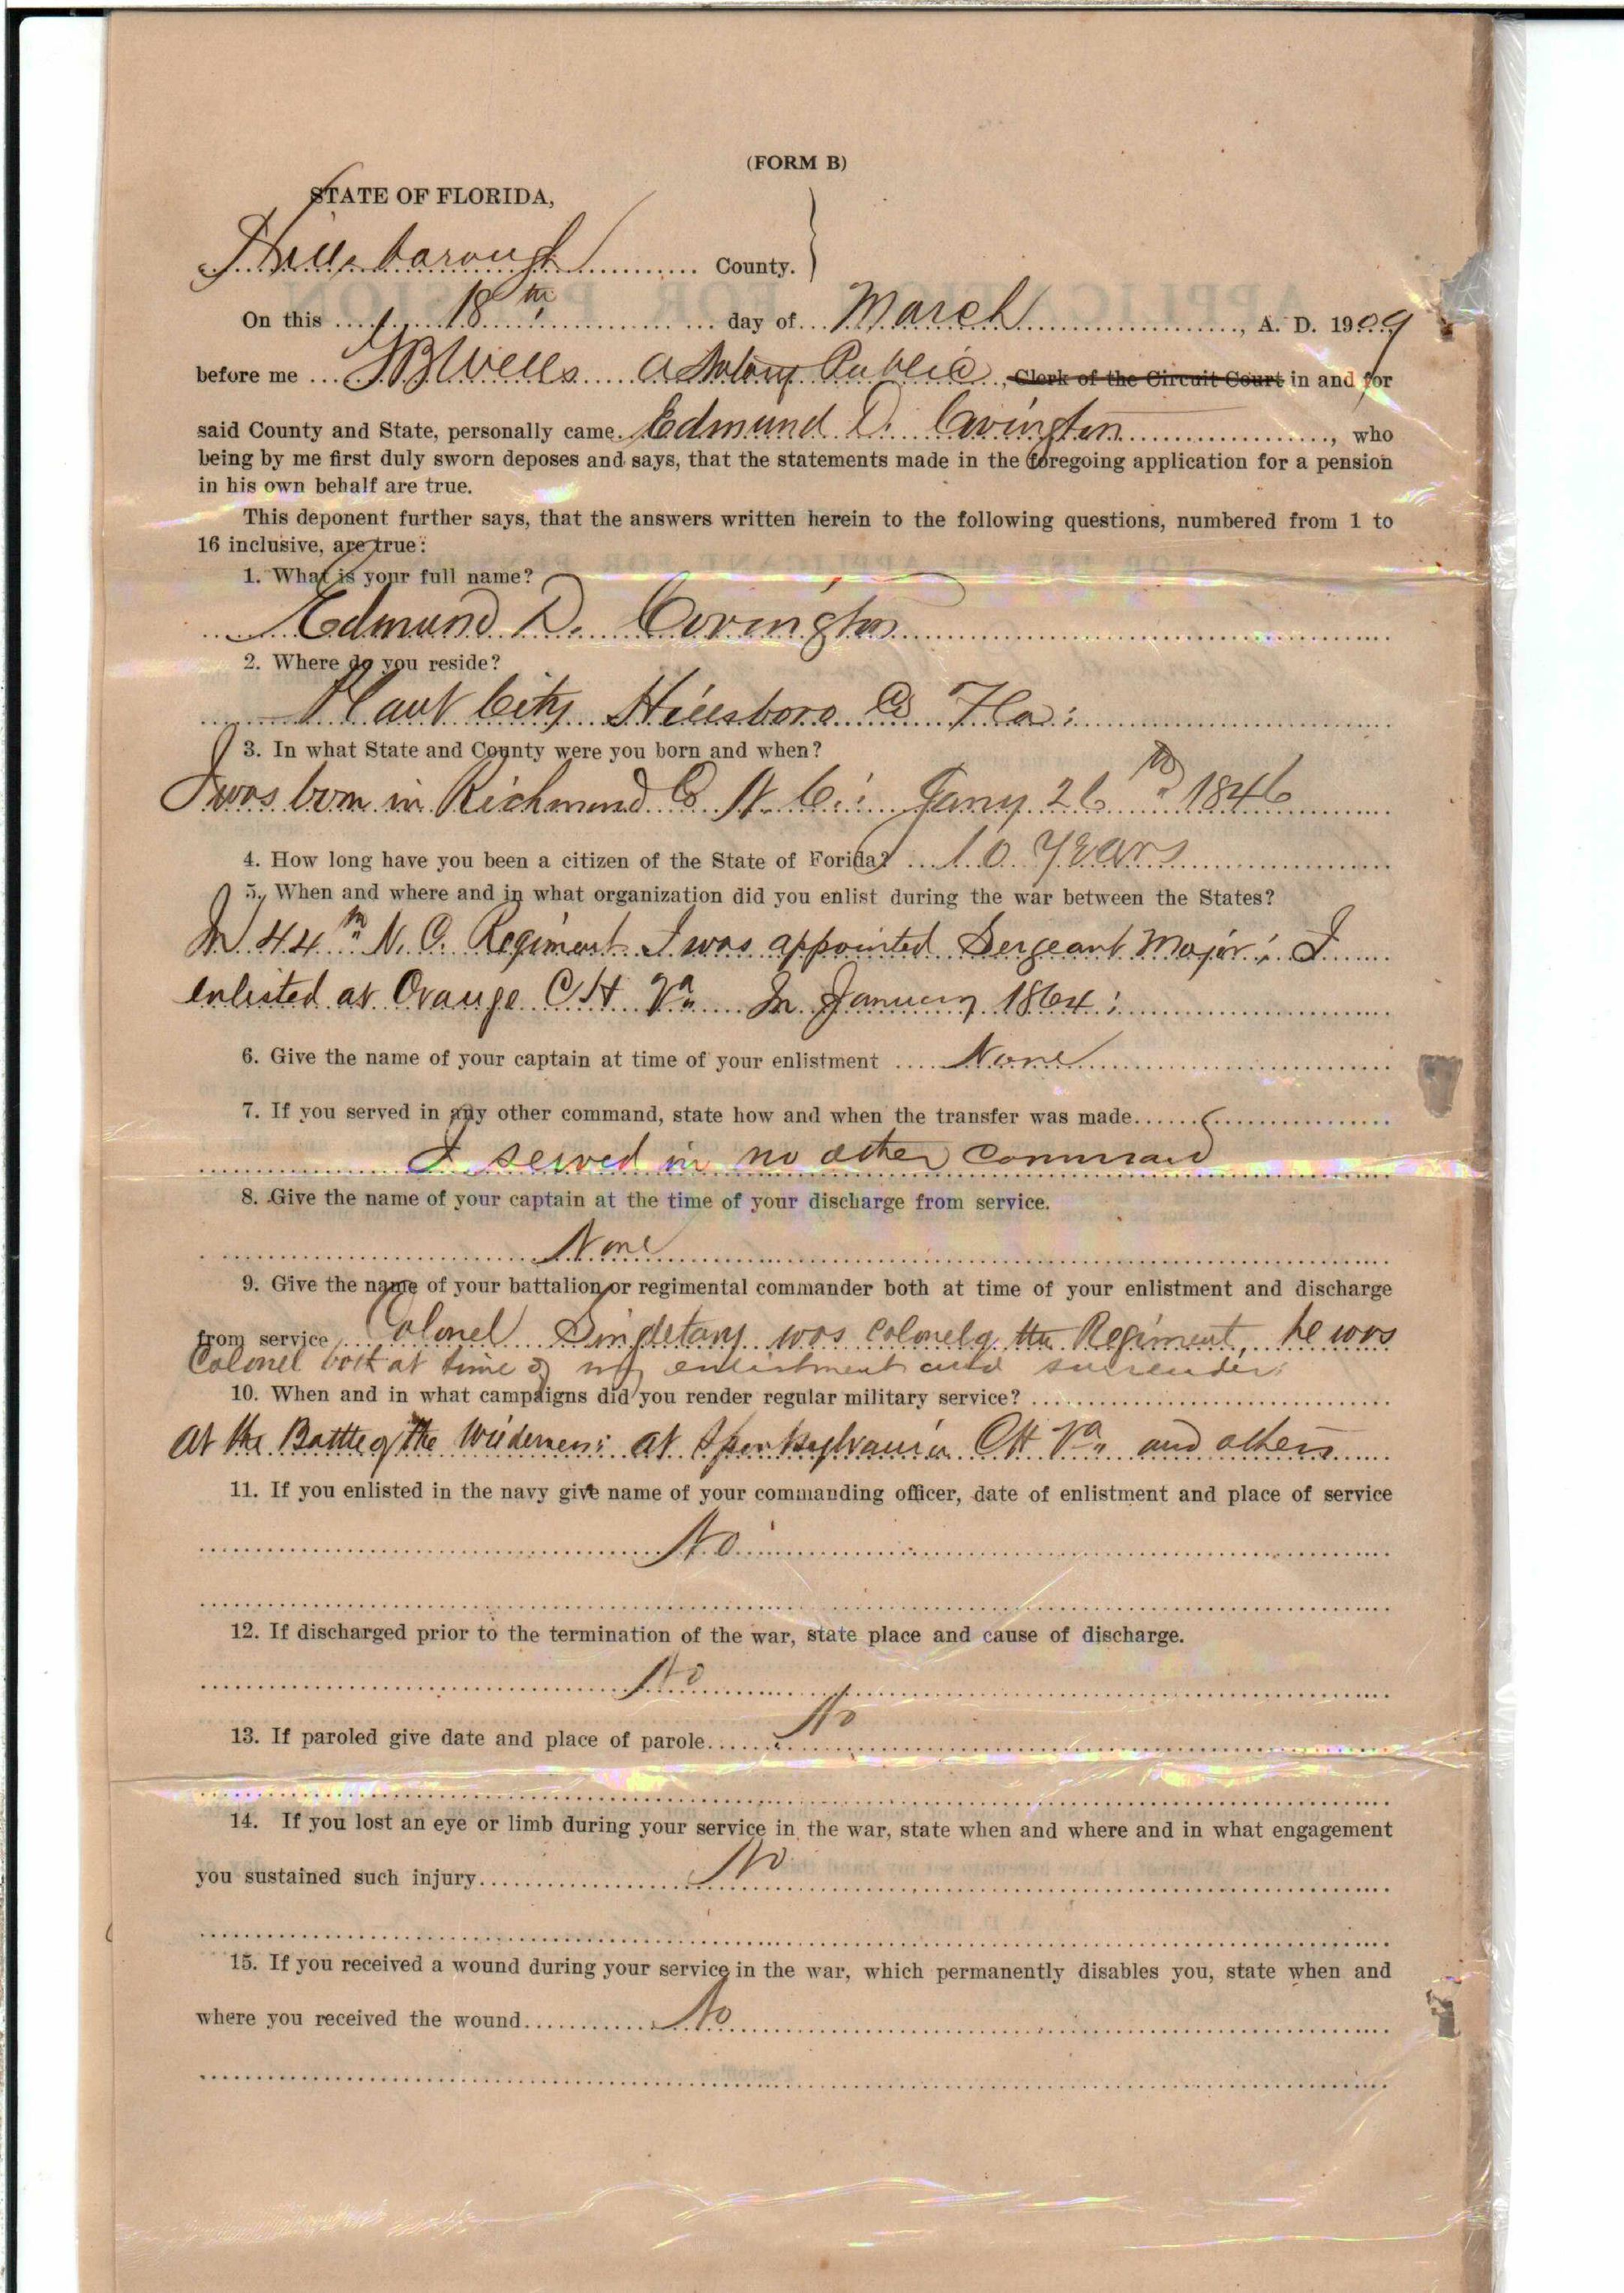 (FORM B)
STATE OF FLORIDA,
Hillsborough County.
On this 18th day of March, A. D. 1909
before me G B Wells a Notary Public, Clerk of the Circuit Court in and for
said County and State, personally came Edmund D. Covington, who
being by me first duly sworn deposes and says, that the statements made in the foregoing application for a pension
in his own behalf are true.
This deponent further says, that the answers written herein to the following questions, numbered from 1 to
16 inclusive, are true:
1. What is your full name?
Edmund D. Covington
2. Where do you reside?
Plant City Hillsboro Co Fla:
3. In what State and County were you born and when?
I was born in Richmond Co N. C.: Jany 26th 1846
4. How long have you been a citizen of the State of Forida? 10 years
5. When and where and in what organization did you enlist during the war between the States?
In 44th N. C. Regiment I was appointed Sergeant Major; I
enlisted at Orange C H Va In January 1864:
6. Give the name of your captain at time of your enlistment None
7. If you served in any other command, state how and when the transfer was made
I served in no other command
8. Give the name of your captain at the time of your discharge from service.
None
9. Give the name of your battalion or regimental commander both at time of your enlistment and discharge
from service Colonel Singletary was Colonel of the Regiment, he was
Colonel both at time of my enlistment and surrender:
10. When and in what campaigns did you render regular military service?
At the Battle of the Wilderness: at Spottsylvania CH Va and others
11. If you enlisted in the navy give name of your commanding officer, date of enlistment and place of service
No
12. If discharged prior to the termination of the war, state place and cause of discharge.
No
13. If paroled give date and place of parole No
14. If you lost an eye or limb during your service in the war, state when and where and in what engagement
you sustained such injury No
15. If you received a wound during your service in the war, which permanently disables you, state when and
where you received the wound No